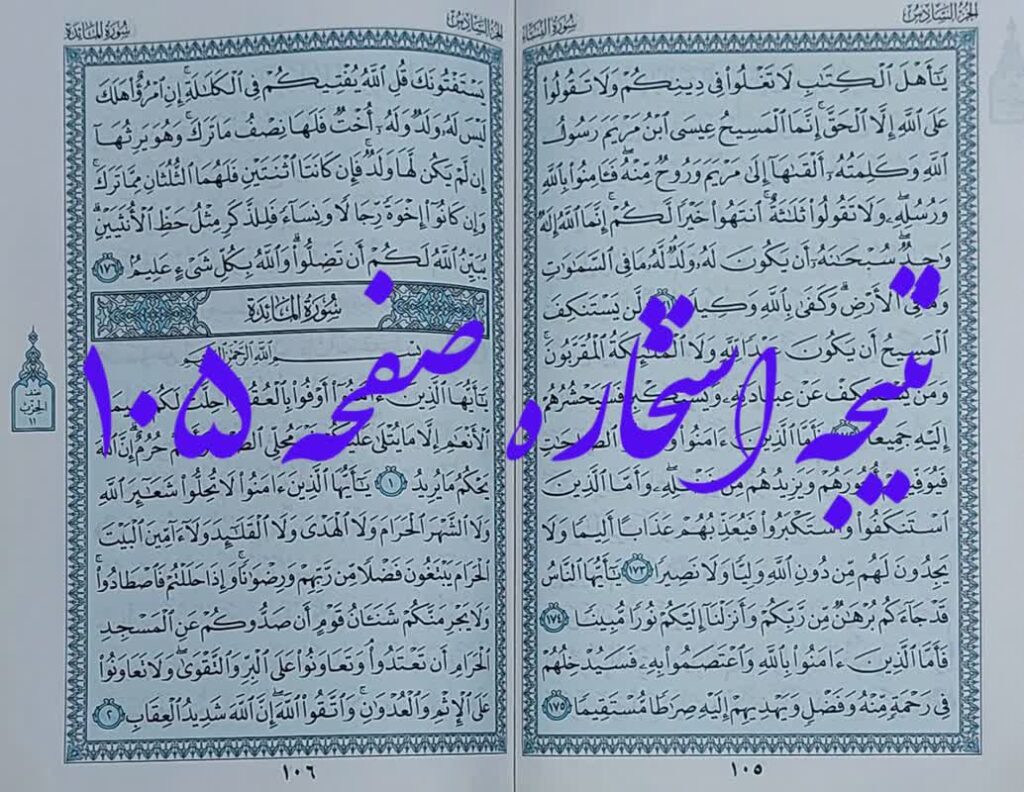 الجزء السادس
سورة النساء
يَٰٓأَهْلَ ٱلْكِتَٰبِ لَا تَغْلُوا۟ فِى دِينِكُمْ وَلَا تَقُولُوا۟
عَلَى ٱللَّهِ إِلَّا ٱلْحَقَّ ۚ إِنَّمَا ٱلْمَسِيحُ عِيسَى ٱبْنُ مَرْيَمَ رَسُولُ
ٱللَّهِ وَكَلِمَتُهُۥٓ أَلْقَىٰهَآ إِلَىٰ مَرْيَمَ وَرُوحٌ مِّنْهُ ۖ فَـَٔامِنُوا۟ بِٱللَّهِ
وَرُسُلِهِۦ ۖ وَلَا تَقُولُوا۟ ثَلَٰثَةٌ ۚ ٱنتَهُوا۟ خَيْرًا لَّكُمْ ۚ إِنَّمَا ٱللَّهُ إِلَٰهٌ
وَٰحِدٌ ۖ سُبْحَٰنَهُۥٓ أَن يَكُونَ لَهُۥ وَلَدٌ ۘ لَّهُۥ مَا فِى ٱلسَّمَٰوَٰتِ
وَمَا فِى ٱلْأَرْضِ ۗ وَكَفَىٰ بِٱللَّهِ وَكِيلًا لَّن يَسْتَنكِفَ
ٱلْمَسِيحُ أَن يَكُونَ عَبْدًا لِّلَّهِ وَلَا ٱلْمَلَٰٓئِكَةُ ٱلْمُقَرَّبُونَ ۚ
وَمَن يَسْتَنكِفْ عَنْ عِبَادَتِهِۦ وَيَسْتَكْبِرْ فَسَيَحْشُرُهُمْ
إِلَيْهِ جَمِيعًا فَأَمَّا ٱلَّذِينَ ءَامَنُوا۟ وَعَمِلُوا۟ ٱلصَّٰلِحَٰتِ
فَيُوَفِّيهِمْ أُجُورَهُمْ وَيَزِيدُهُم مِّن فَضْلِهِۦ ۖ وَأَمَّا ٱلَّذِينَ
ٱسْتَنكَفُوا۟ وَٱسْتَكْبَرُوا۟ فَيُعَذِّبُهُمْ عَذَابًا أَلِيمًا وَلَا
يَجِدُونَ لَهُم مِّن دُونِ ٱللَّهِ وَلِيًّا وَلَا نَصِيرًا ١٧٣ يَٰٓأَيُّهَا ٱلنَّاسُ
قَدْ جَآءَكُم بُرْهَٰنٌ مِّن رَّبِّكُمْ وَأَنزَلْنَآ إِلَيْكُمْ نُورًا مُّبِينًا ١٧٤
فَأَمَّا ٱلَّذِينَ ءَامَنُوا۟ بِٱللَّهِ وَٱعْتَصَمُوا۟ بِهِۦ فَسَيُدْخِلُهُمْ
فِى رَحْمَةٍ مِّنْهُ وَفَضْلٍ وَيَهْدِيهِمْ إِلَيْهِ صِرَٰطًا مُّسْتَقِيمًا ١٧٥
١٠٥
الجزء السادس
سورة المائدة
يَسْتَفْتُونَكَ قُلِ ٱللَّهُ يُفْتِيكُمْ فِى ٱلْكَلَٰلَةِ ۚ إِنِ ٱمْرُؤٌا۟ هَلَكَ
لَيْسَ لَهُۥ وَلَدٌ وَلَهُۥٓ أُخْتٌ فَلَهَا نِصْفُ مَا تَرَكَ ۚ وَهُوَ يَرِثُهَآ
إِن لَّمْ يَكُن لَّهَا وَلَدٌ ۚ فَإِن كَانَتَا ٱثْنَتَيْنِ فَلَهُمَا ٱلثُّلُثَانِ مِمَّا تَرَكَ ۚ
وَإِن كَانُوٓا۟ إِخْوَةً رِّجَالًا وَنِسَآءً فَلِلذَّكَرِ مِثْلُ حَظِّ ٱلْأُنثَيَيْنِ ۗ
يُبَيِّنُ ٱللَّهُ لَكُمْ أَن تَضِلُّوا۟ ۗ وَٱللَّهُ بِكُلِّ شَىْءٍ عَلِيمٌۢ ١٧٦
سُورَةُ المَائِدَةِ
بِسْمِ ٱللَّهِ ٱلرَّحْمَٰنِ ٱلرَّحِيمِ
يَٰٓأَيُّهَا ٱلَّذِينَ ءَامَنُوٓا۟ أَوْفُوا۟ بِٱلْعُقُودِ ۚ أُحِلَّتْ لَكُم بَهِيمَةُ
ٱلْأَنْعَٰمِ إِلَّا مَا يُتْلَىٰ عَلَيْكُمْ غَيْرَ مُحِلِّى ٱلصَّيْدِ وَأَنتُمْ حُرُمٌ ۗ إِنَّ ٱللَّهَ
يَحْكُمُ مَا يُرِيدُ ١ يَٰٓأَيُّهَا ٱلَّذِينَ ءَامَنُوا۟ لَا تُحِلُّوا۟ شَعَٰٓئِرَ ٱللَّهِ
وَلَا ٱلشَّهْرَ ٱلْحَرَامَ وَلَا ٱلْهَدْىَ وَلَا ٱلْقَلَٰٓئِدَ وَلَآ ءَآمِّينَ ٱلْبَيْتَ
ٱلْحَرَامَ يَبْتَغُونَ فَضْلًا مِّن رَّبِّهِمْ وَرِضْوَٰنًا ۚ وَإِذَا حَلَلْتُمْ فَٱصْطَادُوا۟ ۚ
وَلَا يَجْرِمَنَّكُمْ شَنَـَٔانُ قَوْمٍ أَن صَدُّوكُمْ عَنِ ٱلْمَسْجِدِ
ٱلْحَرَامِ أَن تَعْتَدُوا۟ ۘ وَتَعَاوَنُوا۟ عَلَى ٱلْبِرِّ وَٱلتَّقْوَىٰ ۖ وَلَا تَعَاوَنُوا۟
عَلَى ٱلْإِثْمِ وَٱلْعُدْوَٰنِ ۚ وَٱتَّقُوا۟ ٱللَّهَ ۖ إِنَّ ٱللَّهَ شَدِيدُ ٱلْعِقَابِ ٢
١٠٦
نصف
الحزب
١١
نتیجه استخاره صفحه ۱۰۵